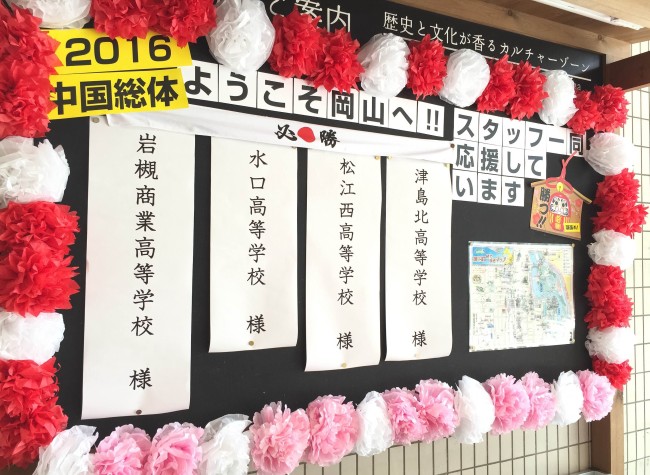 ご案内
歴史と文化が香るカルチャーゾーン
2016
中国総体
ようこそ岡山へ!!
スタッフ一同
応援して
います
必勝
岩槻商業高等学校 様
水口高等学校 様
松江西高等学校 様
津島北高等学校 様
勝つ!!